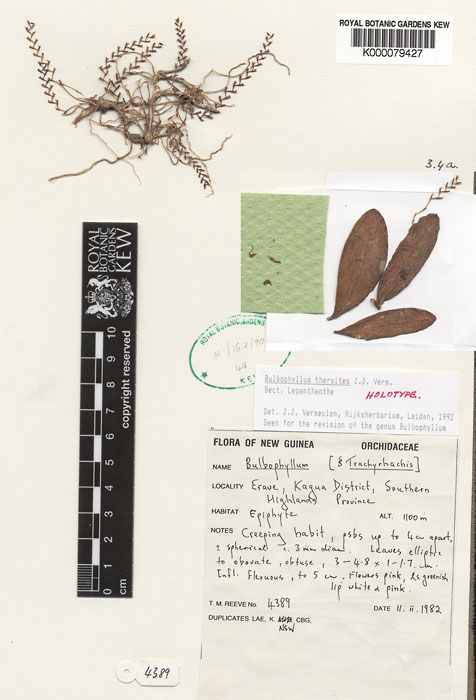 ROYAL BOTANIC GARDENS KEW
K000079427
3.4a.
ROYAL BOTANIC GARDENS KEW
0 1 2 3 4 5 6 7 8 9 10
cm
copyright reserved
ROYAL BOTANIC GARDENS
H/167/90
48
KEW
Bulbophyllum thersites J.J. Verm.
Sect. Lepanthanthe
HOLOTYPE.
Det. J.J. Vermeulen, Rijksherbarium, Leiden, 1992
Seen for the revision of the genus Bulbophyllum
FLORA OF NEW GUINEA ORCHIDACEAE
NAME Bulbophyllum [§ Trachyrhachis]
LOCALITY Erave, Kagua District, Southern
Highlands Province
HABITAT Epiphyte ALT. 1100 m
NOTES Creeping habit, psbs up to 4 cm apart,
± spherical c. 3 mm diam. Leaves elliptic
to obovate, obtuse, 3-4.8 x 1-1.7 cm.
Infl. flexuous, to 5 cm. Flowers pink, ls greenish
lip white & pink.
T. M. REEVE No. 4389 DATE 11. ii. 1982
DUPLICATES LAE, K, CBG,
NSW
4389